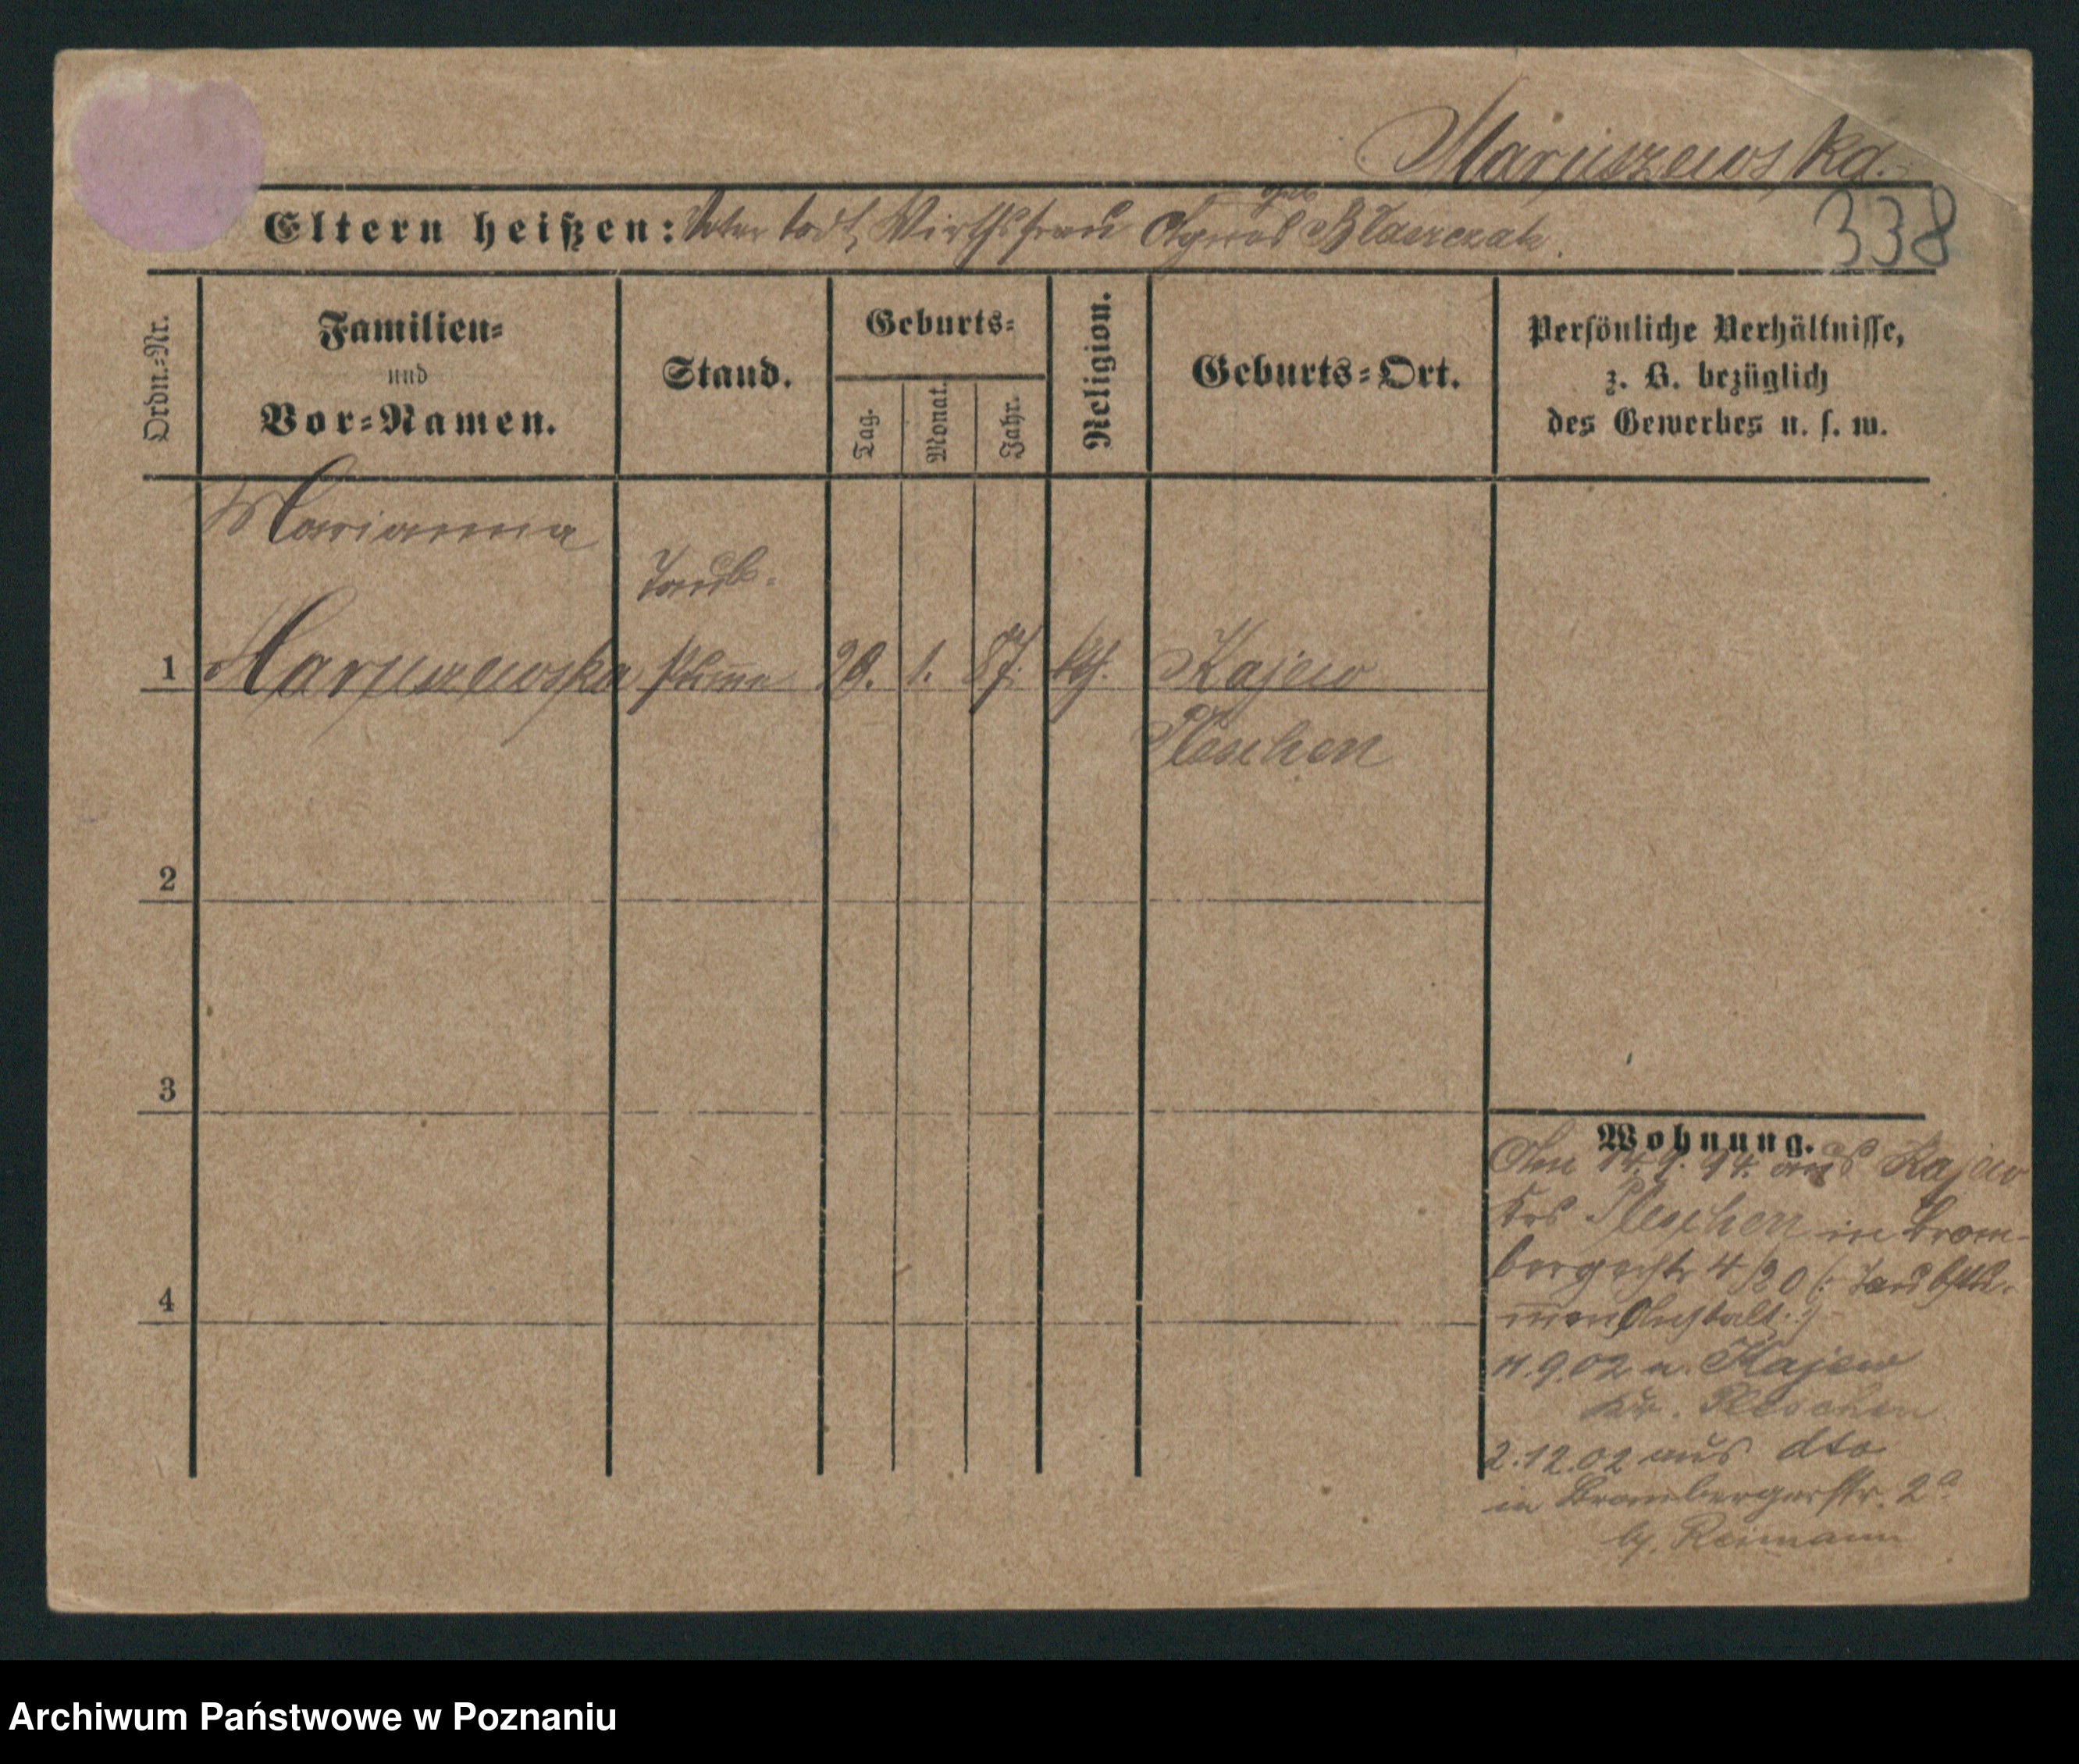 Maryszewska.
338
Eltern heißen: Vater todt, Wirthsfrau Agnes geb Blaszczak.
Ordn.-Nr.
Familien- und Vor-Namen.
Stand.
Geburts-
Tag.
Monat.
Jahr.
Religion.
Geburts-Ort.
Persönliche Verhältnisse,
z. B. bezüglich
des Gewerbes u. s. w.
Marianna
Taub-
1 Maryszewska stumme 20. 1. 87. kth. Kajew
Pleschen
2
3
4
Wohnung.
Am 14.9.94. aus Kajew
Krs Pleschen in Brom-
bergerstr 4/20 (: Taubstu-
mmen Anstalt :)
11.9.02 n. Kajew
Kr. Pleschen
2.12.02 aus dto
in Brombergerstr. 2a
bj. Reimann
Archiwum Państwowe w Poznaniu